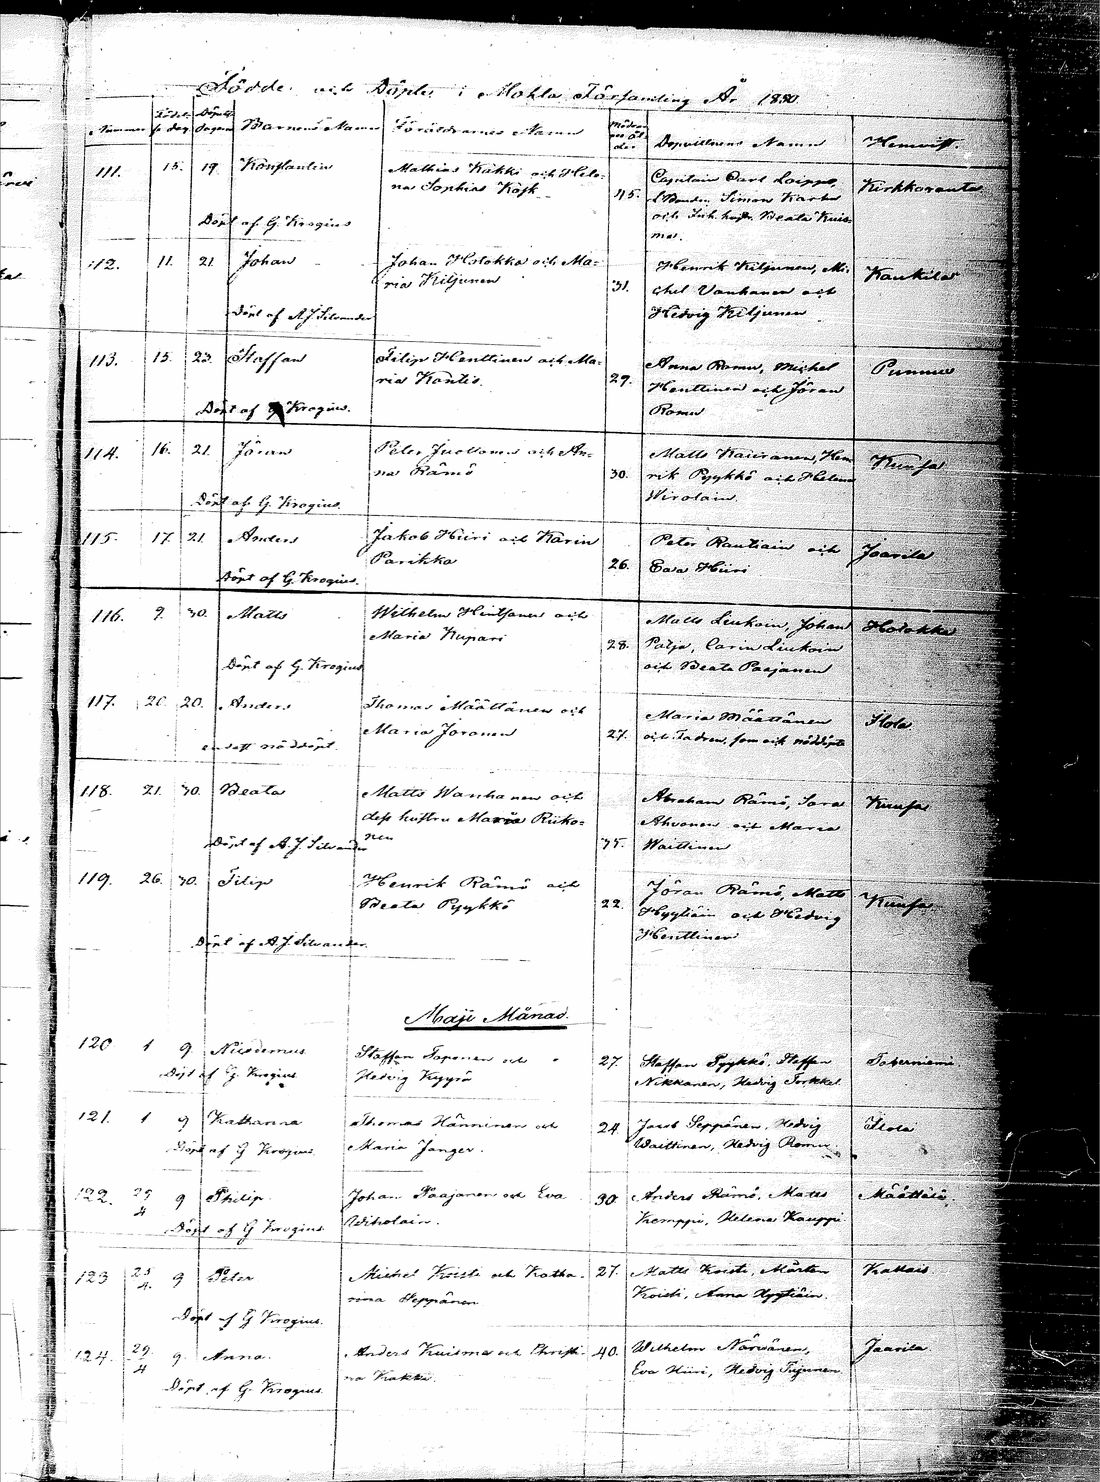 Födde och Döpte i Mohla Församling År 1880
Nummer Födelse dag Döpelse dagen Barnens Namn Föräldrarnes Namn Modrens Ålder Dopvittnens Namn Hemvist.
111. 15. 19. Konstantin Mathias Kakki och Hele-
na Sophia Käsk 45. Capitain Carl Loippo, Kirkkoranta
Simon Karhu
Döpt af G. Krogius och Beata Kuis-
ma.
112. 11. 21. Johan Johan Holokka och Ma-
ria Kiljunen 31. Henrik Kiljunen, Mi- Kaukila
chel Vanhanen och
Döpt af A J Silvander Hedvig Kiljunen
113. 15. 23. Staffan Filip Henttinen och Ma-
ria Kontio. 29. Anna Romu, Michel Punnus
Henttinen och Jöran
Döpt af G Krogius. Romu
114. 16. 21. Jöran Peter Juvonen och An-
na Rämö 30. Matts Kauranen, Hen- Kuusa
rik Pyykkö och Helena
Döpt af G. Krogius. Wirolain
115. 17. 21. Anders Jakob Hiiri och Karin
Parikka 26. Peter Rautiain och Jaarila
Döpt af G. Krogius. Eva Hiiri
116. 9. 30. Matts Wilhelm Hintsanen och
Maria Kupari 28. Matts Liukoin, Johan Holokka
Patja, Carin Liukoin
Döpt af G. Krogius och Beata Paajanen
117. 20. 20. Anders Thomas Määttänen och
Maria Joronen 27. Maria Määttänen Ilola
endast nöddöpt. och Fadren, som ock nöddöpte
118. 21. 30. Beata Matts Wanhanen och
dess hustru Maria Riiko-
nen 35. Abraham Rämö, Sara Kuusa
Ahvonen och Maria
Döpt af A. J. Silvander Waittinen
119. 26. 30. Filip Henrik Rämö och
Beata Pyykkö 22. Jöran Rämö, Matts Kuusa
Hyytiäin och Hedvig
Döpt af A. J. Silvander. Henttinen
Maji Månad.
120 1 9 Nicodemus Staffan Toponen och 27. Staffan Pyykkö, Staffan
Döpt af G. Krogius Hedvig Kyyrö Nikkanen, Hedvig Torkkel
121. 1 9 Katharina Thomas Hänninen och 24. Jacob Seppänen, Hedvig Ilola
Döpt af G Krogius. Maria Janger. Waittinen, Hedvig Romu.
122. 25/4 9 Philip. Johan Paajanen och Eva 30 Anders Rämö, Matts Määttälä.
Döpt af G Krogius Wiholain. Kemppi, Helena Kauppi
123 25/4. 9 Peter Michel Koisti och Katha- 27. Matts Koisti, Mårten Kattais
rina Seppänen Koisti, Anna Hyytiäin.
Döpt af G Krogius.
124. 29/4 9. Anna. Anders Kuisma och Christi- 40. Wilhelm Närvänen, Jaarila
na Kakki. Eva Hiiri, Hedvig Tujunen.
Döpt af G. Krogius.